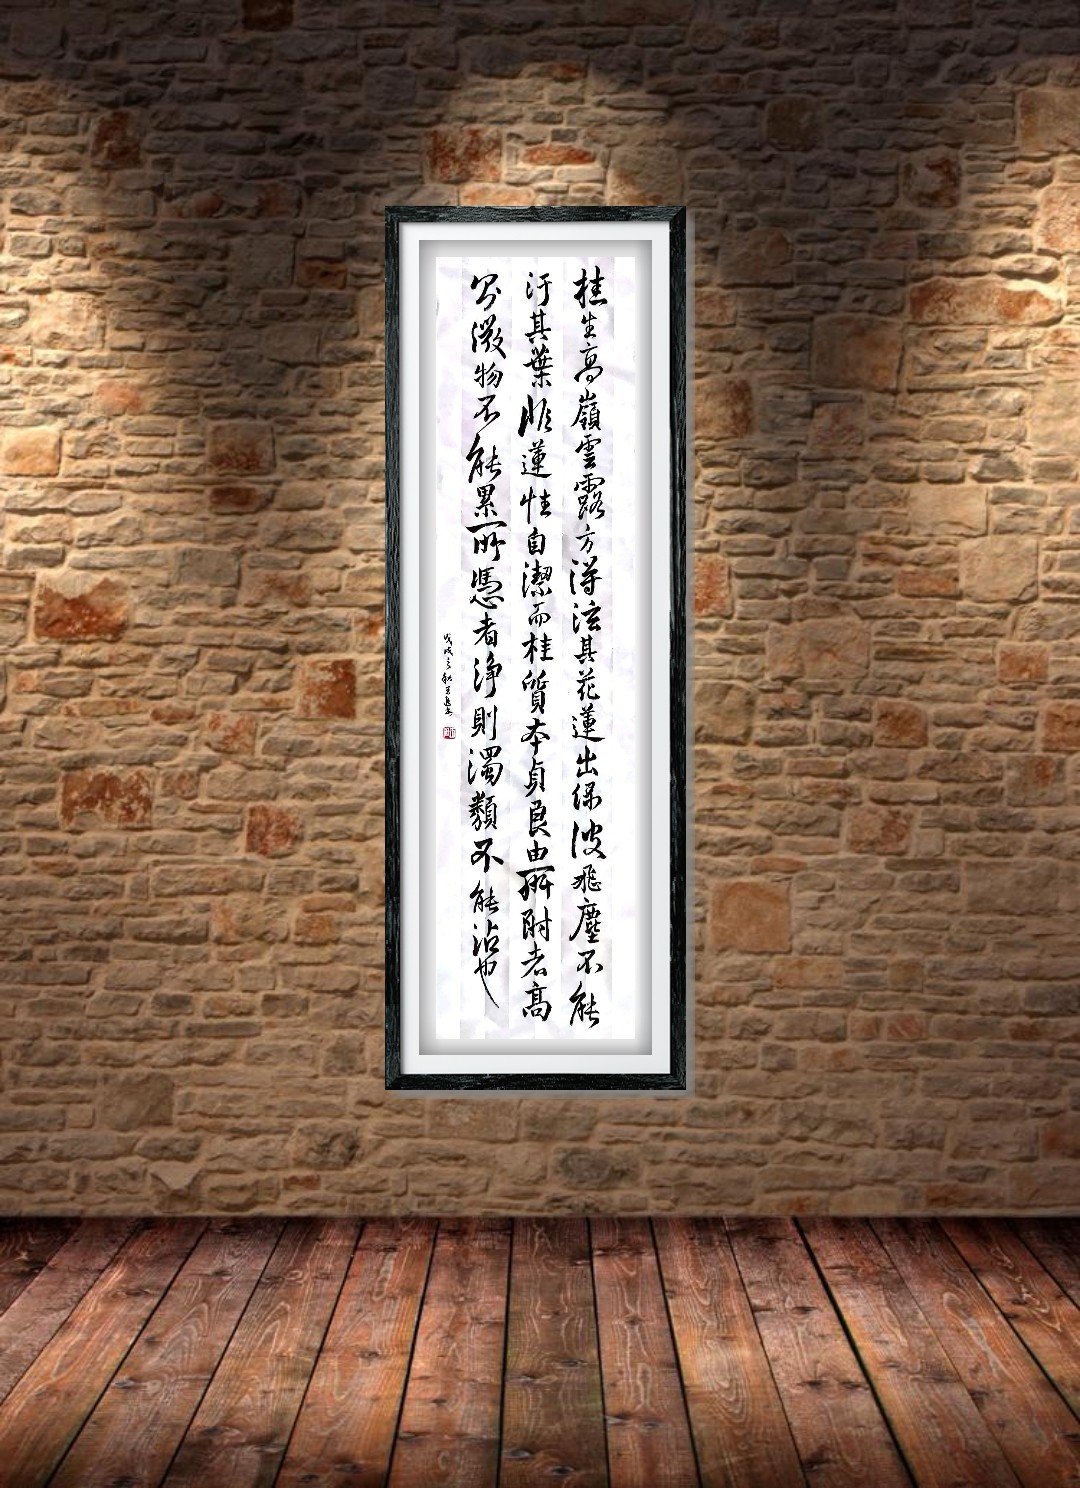 桂生高嶺雲露方得泫其花蓮出綠波飛塵不能
汙其葉非蓮性自潔而桂質本貞良由所附者高
則微物不能累所憑者淨則濁類不能沾也
戊戌之秋